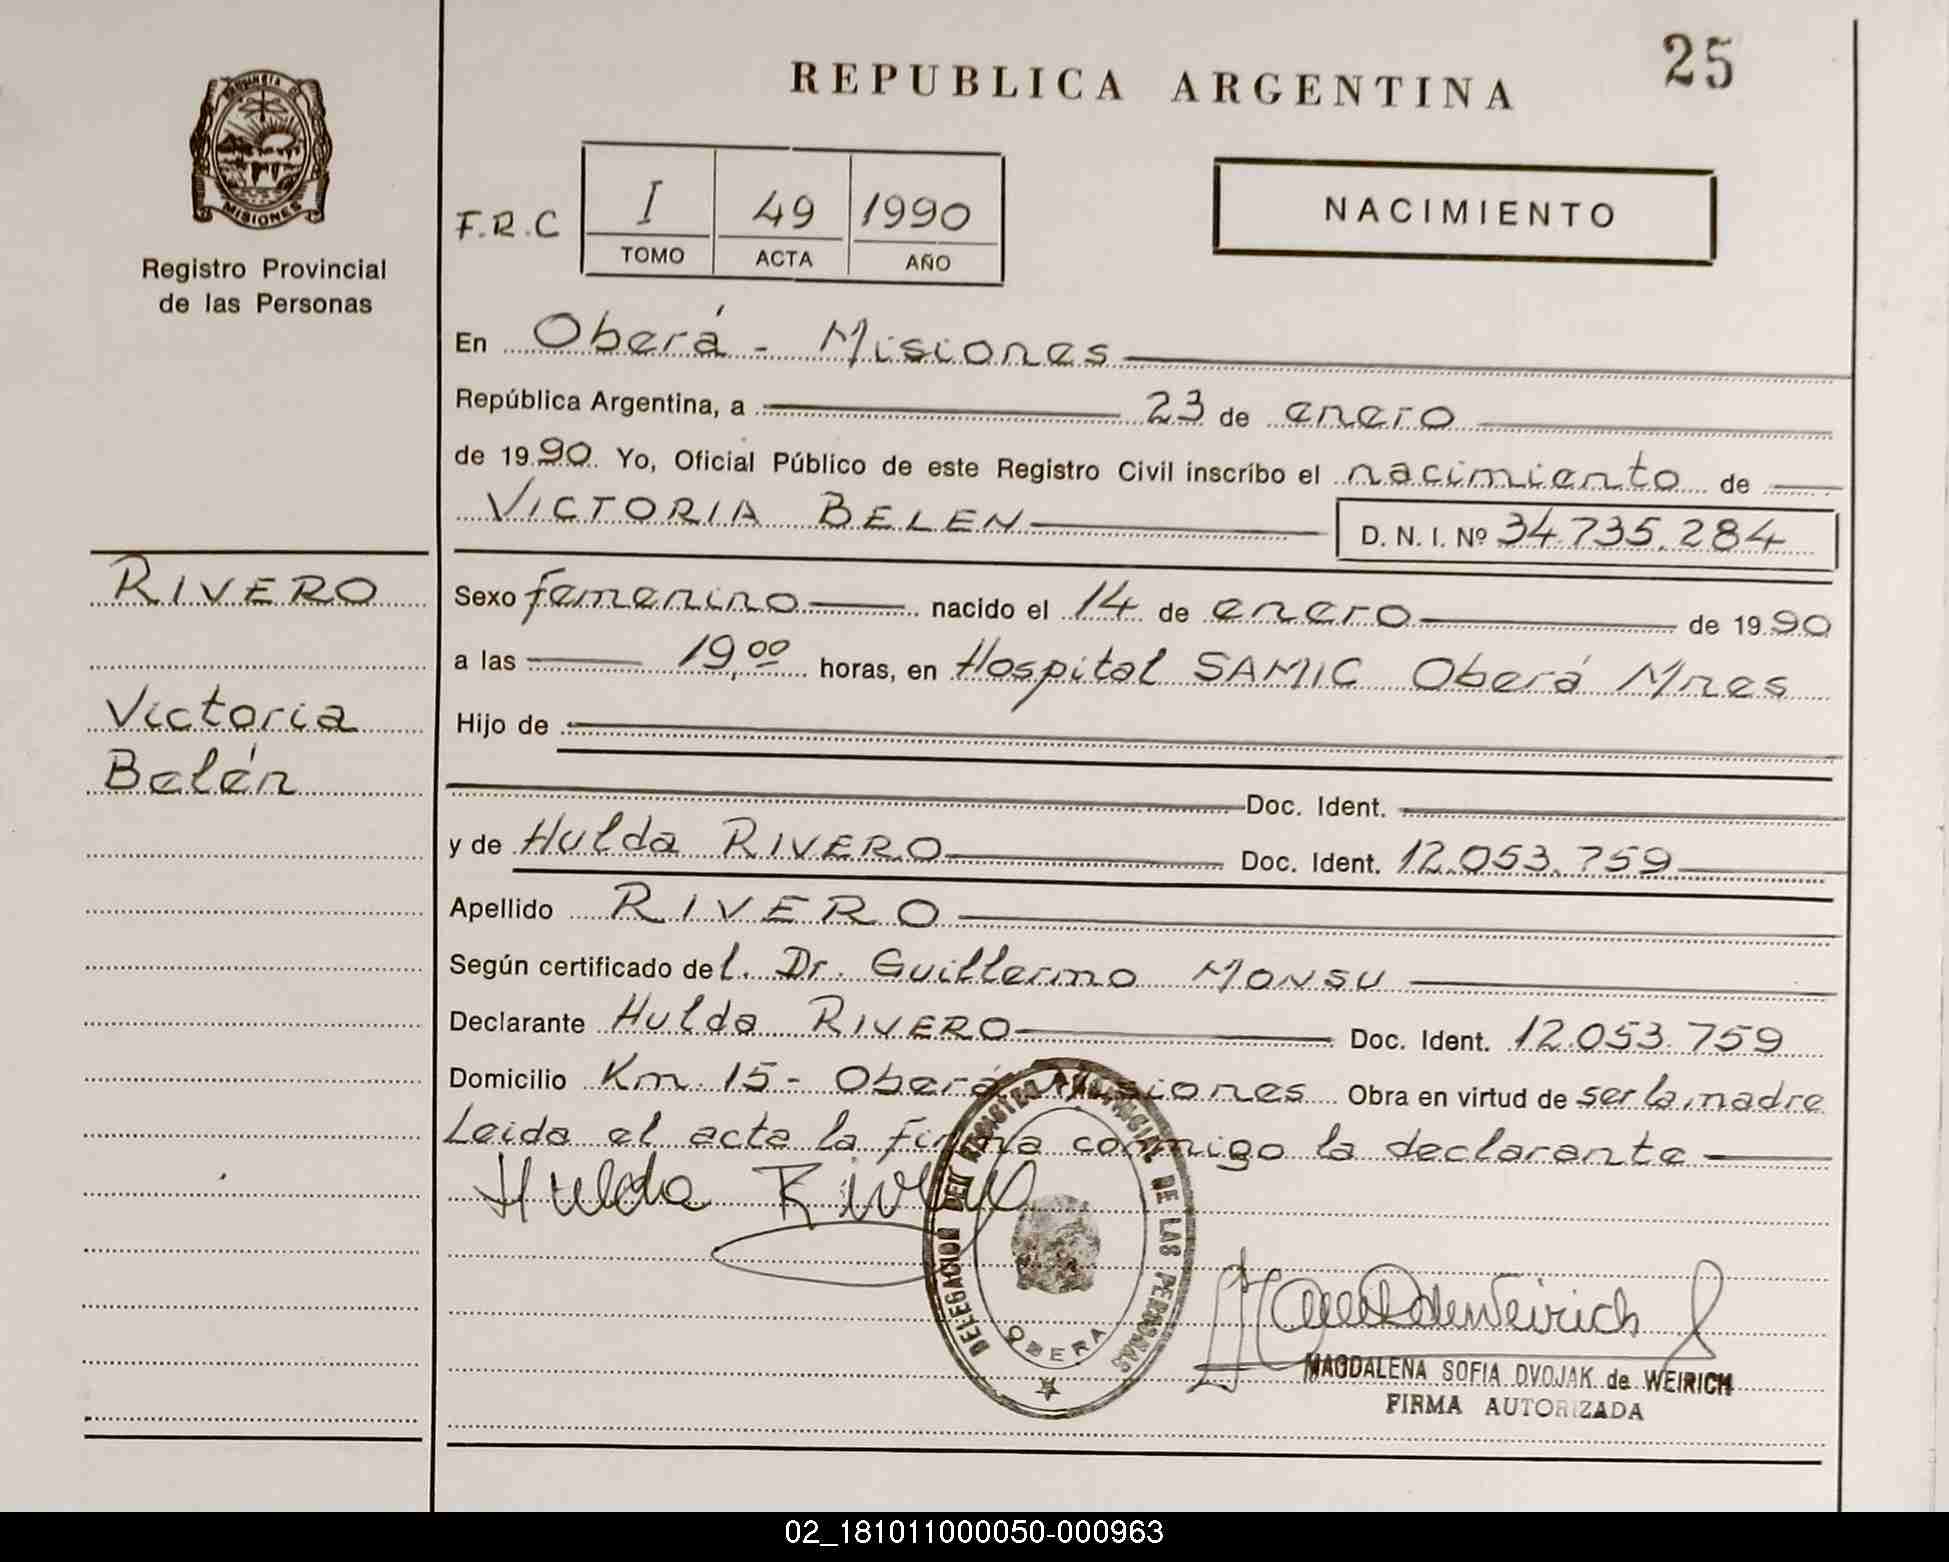 25
REPUBLICA ARGENTINA
PROVINCIA DE
MISIONES
Registro Provincial
de las Personas
F.R.C
I 49 1990
TOMO ACTA AÑO
NACIMIENTO
En Oberá - Misiones
República Argentina, a 23 de enero
de 1990. Yo, Oficial Público de este Registro Civil inscribo el nacimiento de
VICTORIA BELEN D. N. I. Nº 34.735.284
RIVERO
Victoria
Belén
Sexo femenino nacido el 14 de enero de 1990
a las 19,00 horas, en Hospital SAMIC Oberá Mnes
Hijo de
Doc. Ident.
y de Hulda RIVERO Doc. Ident. 12.053.759
Apellido RIVERO
Según certificado del Dr. Guillermo MONSU
Declarante Hulda RIVERO Doc. Ident. 12.053.759
Domicilio Km 15 - Oberá Misiones Obra en virtud de ser la madre
Leida el acta la firma conmigo la declarante
Hulda Rivero
DELEGACION DEL REGISTRO PROVINCIAL DE LAS PERSONAS
OBERA
MAGDALENA SOFIA DVOJAK de WEIRICH
FIRMA AUTORIZADA
02_181011000050-000963